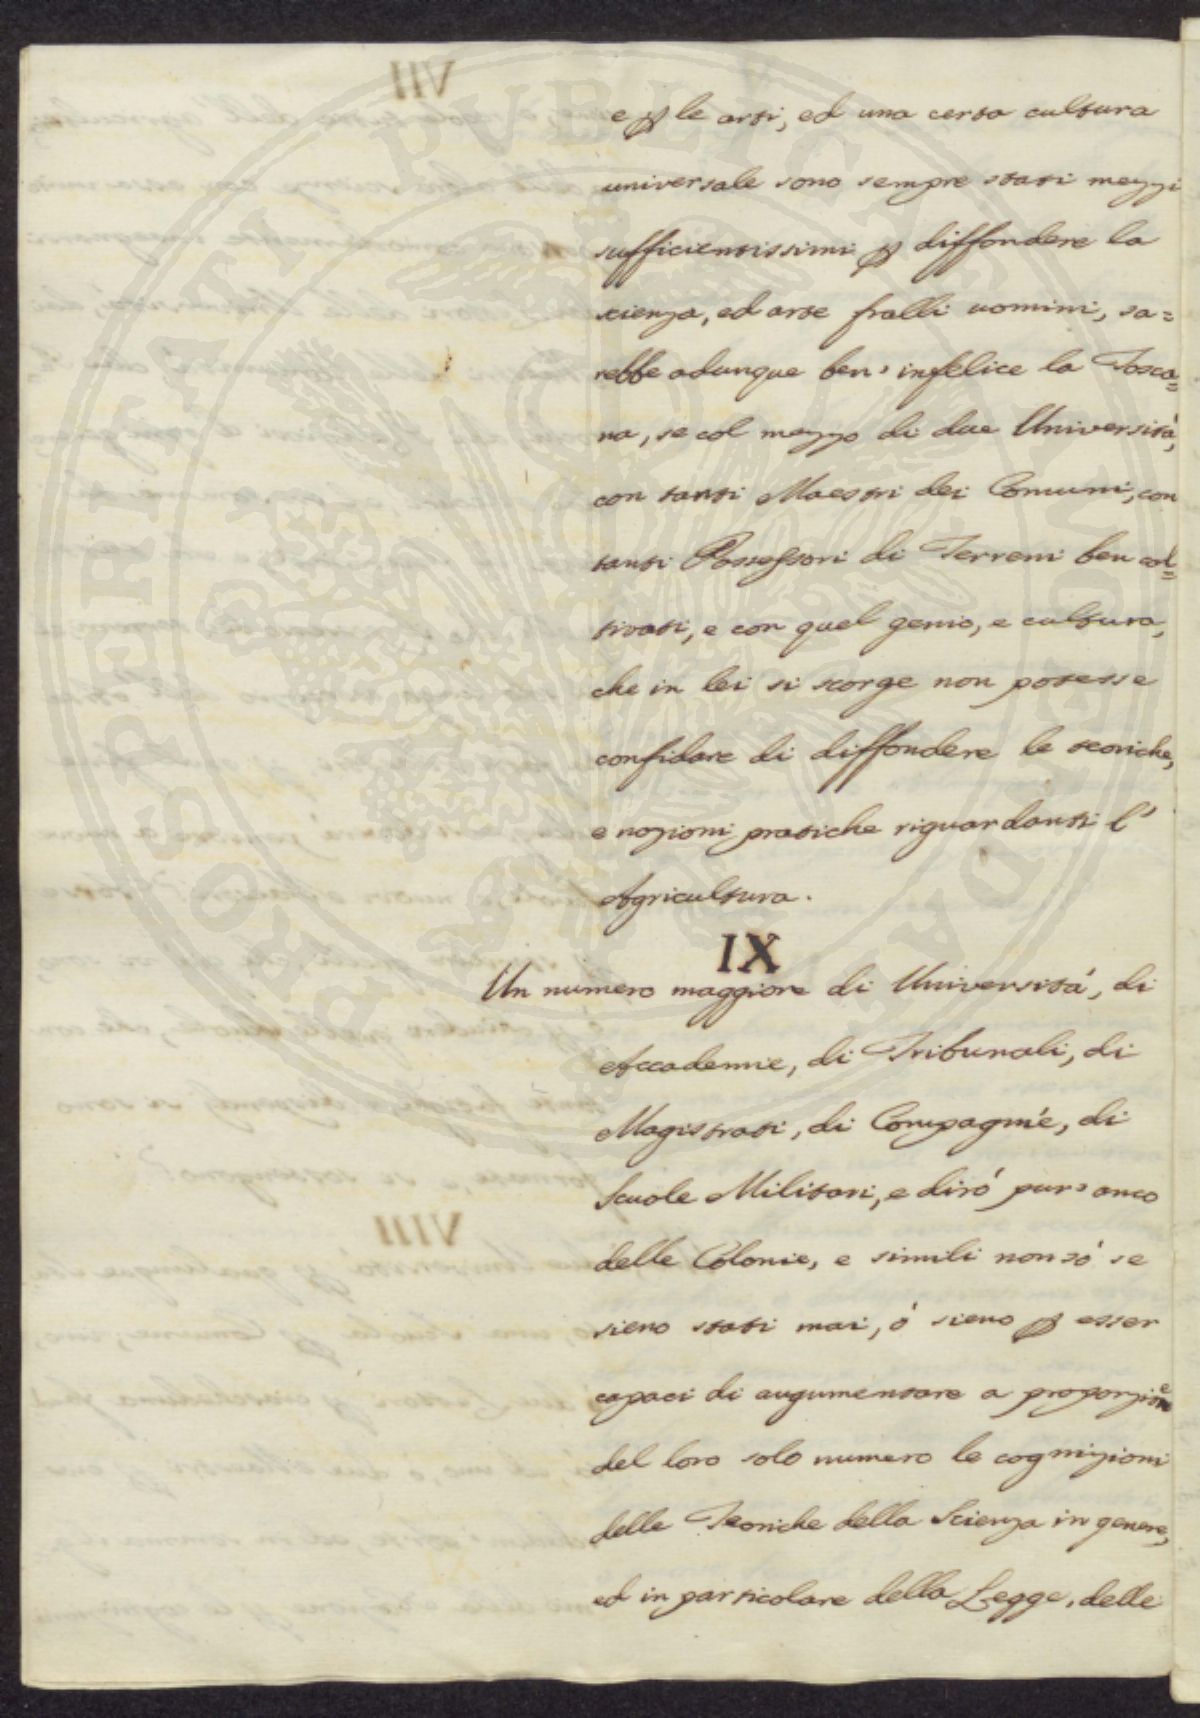 e ꝑ le arti, ed una certa cultura
universale sono sempre stati mezzi
sufficientissimi ꝑ diffondere la
scienza, ed arte fralli uomini, sa=
rebbe adunque ben' infelice la Tosca=
na, se col mezzo di due Università,
con tanti Maestri dei Comuni, con
tanti Possessori di Terreni ben col=
tivati, e con quel genio, e cultura,
che in lei si scorge non potesse
confidare di diffondere le teoriche,
e nozioni pratiche riguardanti l'
Agricultura.
IX
Un numero maggiore di Universitá, di
Accademie, di Tribunali, di
Magistrati, di Compagníe, di
Scuole Militari, e diró pur' anco
delle Colonie, e simili non só se
sieno stati mai, ó sieno ꝑ esser
capaci di augumentare a proporzione
del loro solo numero le cognizioni
delle Teoriche della Scienza in genere,
ed in particolare della Legge, delle
PROSPERITATI PVBLICAE